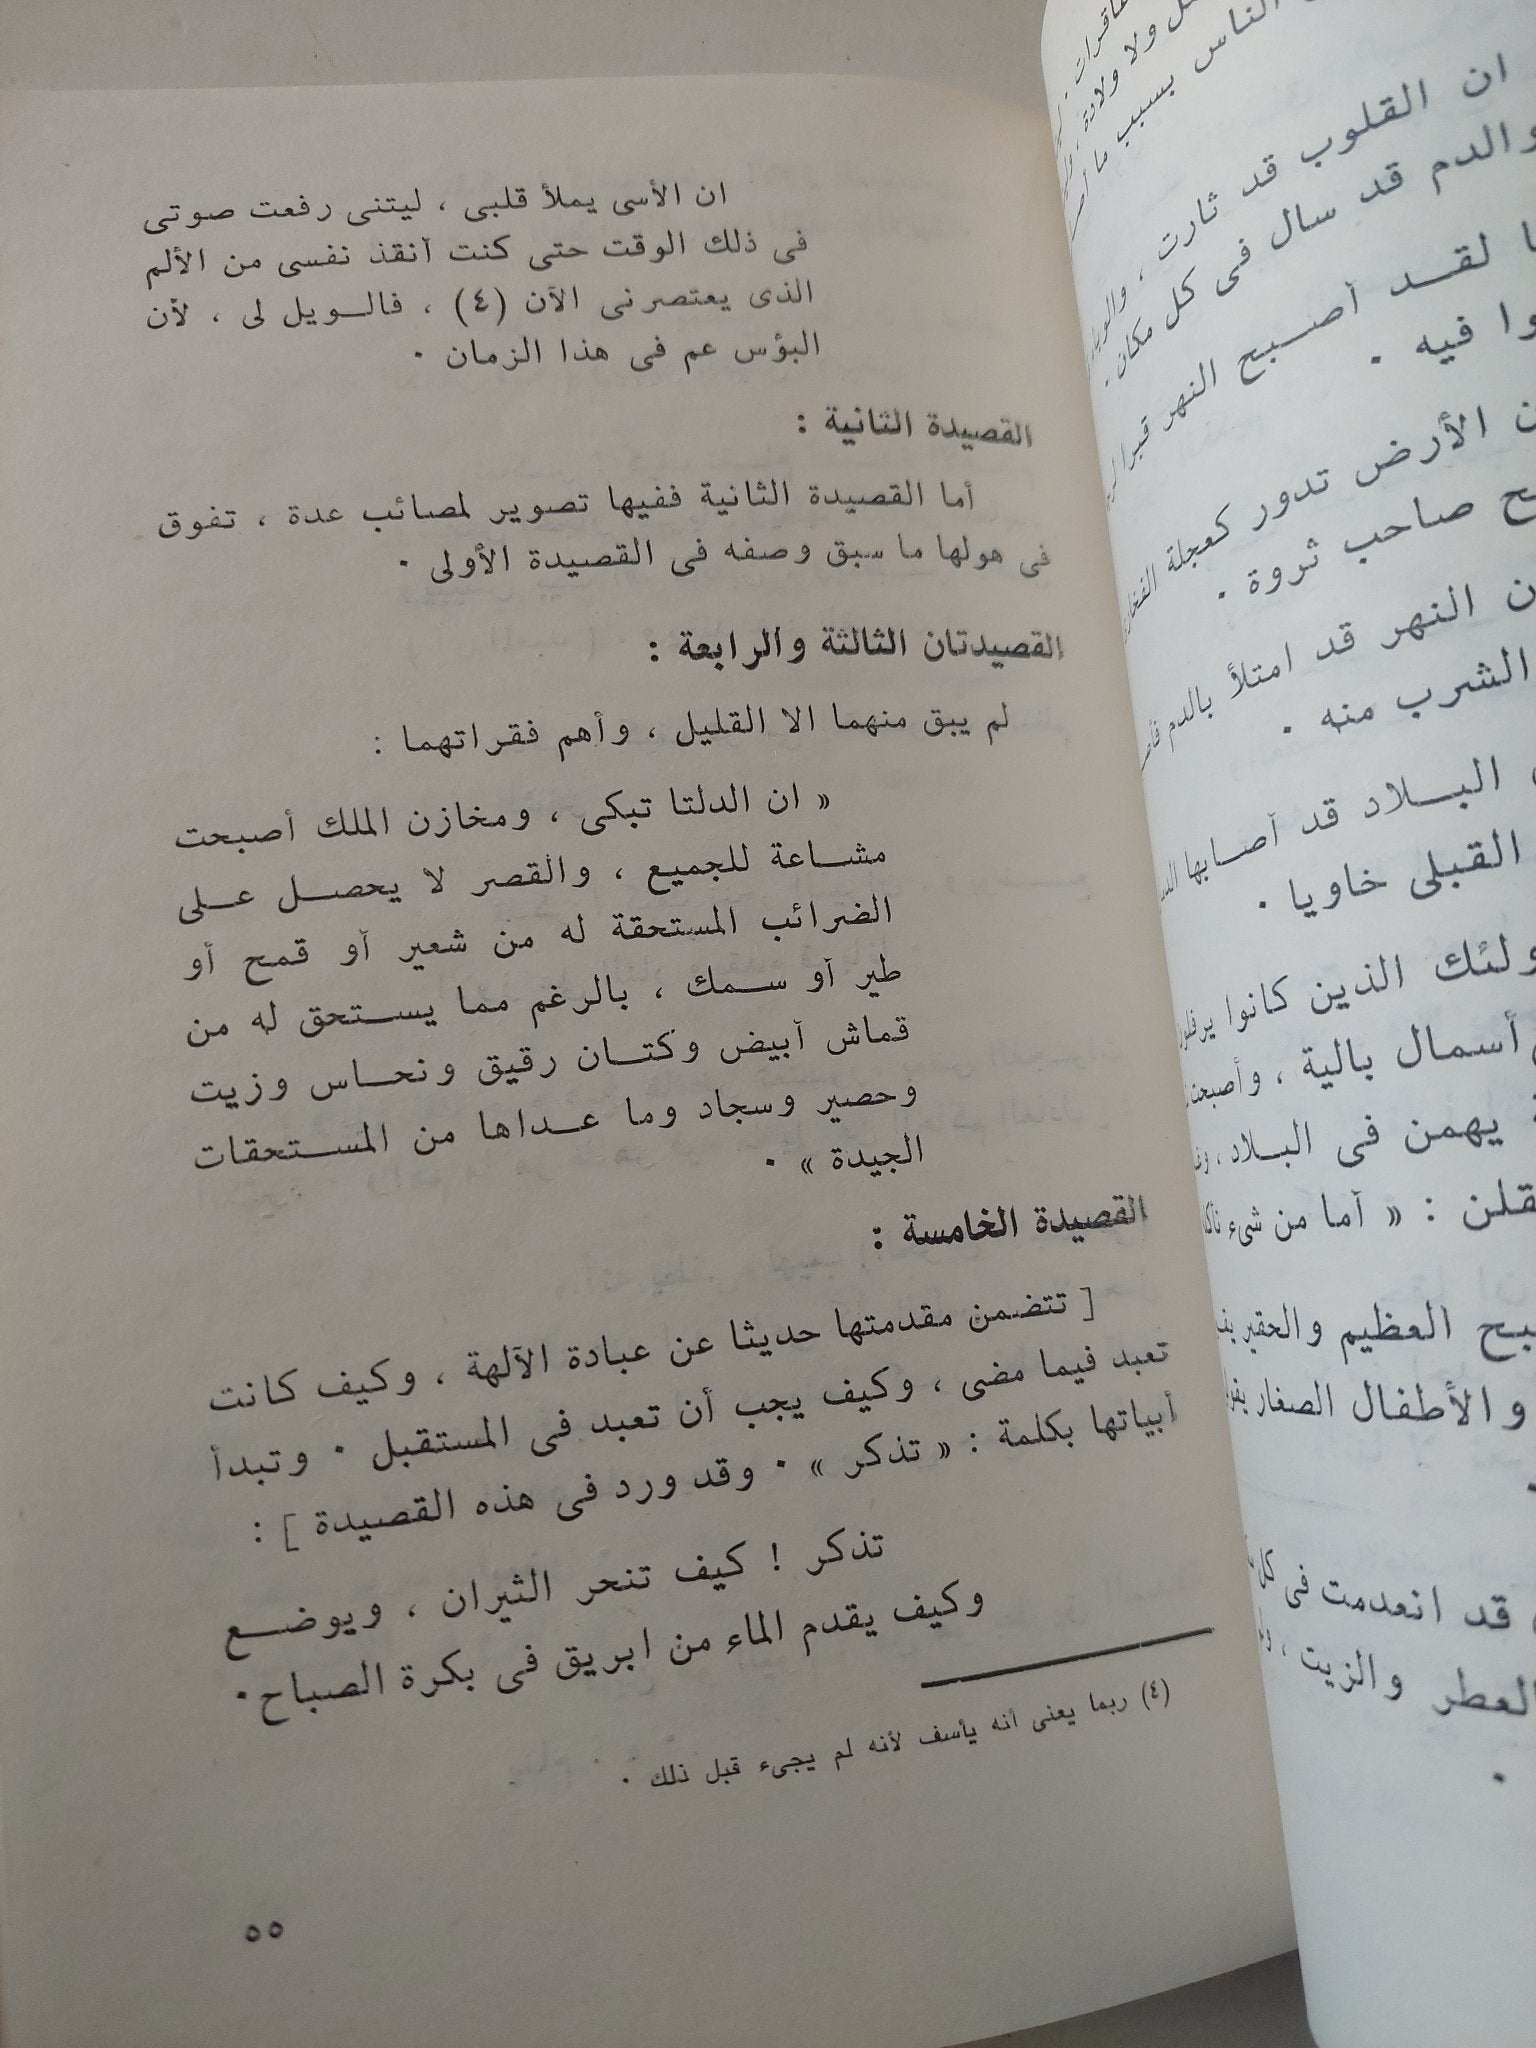 ان الأسى يملأ قلبى ، ليتنى رفعت صوتى
فى ذلك الوقت حتى كنت أنقذ نفسى من الألم
الذى يعتصرنى الآن (٤) ، فالويل لى ، لأن
البؤس عم فى هذا الزمان ٠
القصيدة الثانية :
أما القصيدة الثانية ففيها تصوير لمصائب عدة ، تفوق
فى هولها ما سبق وصفه فى القصيدة الأولى ٠
القصيدتان الثالثة والرابعة :
لم يبق منهما الا القليل ، وأهم فقراتهما :
« ان الدلتا تبكى ، ومخازن الملك أصبحت
مشاعة للجميع ، والقصر لا يحصل على
الضرائب المستحقة له من شعير أو قمح أو
طير أو سمك ، بالرغم مما يستحق له من
قماش أبيض وكتان رقيق ونحاس وزيت
وحصير وسجاد وما عداها من المستحقات
الجيدة » ٠
القصيدة الخامسة :
[ تتضمن مقدمتها حديثا عن عبادة الآلهة ، وكيف كانت
تعبد فيما مضى ، وكيف يجب أن تعبد فى المستقبل ٠ وتبدأ
أبياتها بكلمة : « تذكر » ٠ وقد ورد فى هذه القصيدة ] :
تذكر ! كيف تنحر الثيران ، ويوضع
وكيف يقدم الماء من ابريق فى بكرة الصباح ٠
(٤) ربما يعنى أنه يأسف لأنه لم يجىء قبل ذلك ٠
٥٥
الناس بسبب ما
ان القلوب قد ثارت ،
والدم قد سال فى كل مكان ٠
لقد أصبح النهر قبرا
فيه ٠
الأرض تدور كعجلة
صاحب ثروة ٠
النهر قد امتلأ بالدم
الشرب منه ٠
البلاد قد أصابها
القبلى خاويا ٠
الذين كانوا
أسمال بالية ،
يهمن فى البلاد ،
« أما من شىء
العظيم والحقير
والأطفال الصغار
قد انعدمت فى كل
العطر والزيت ،